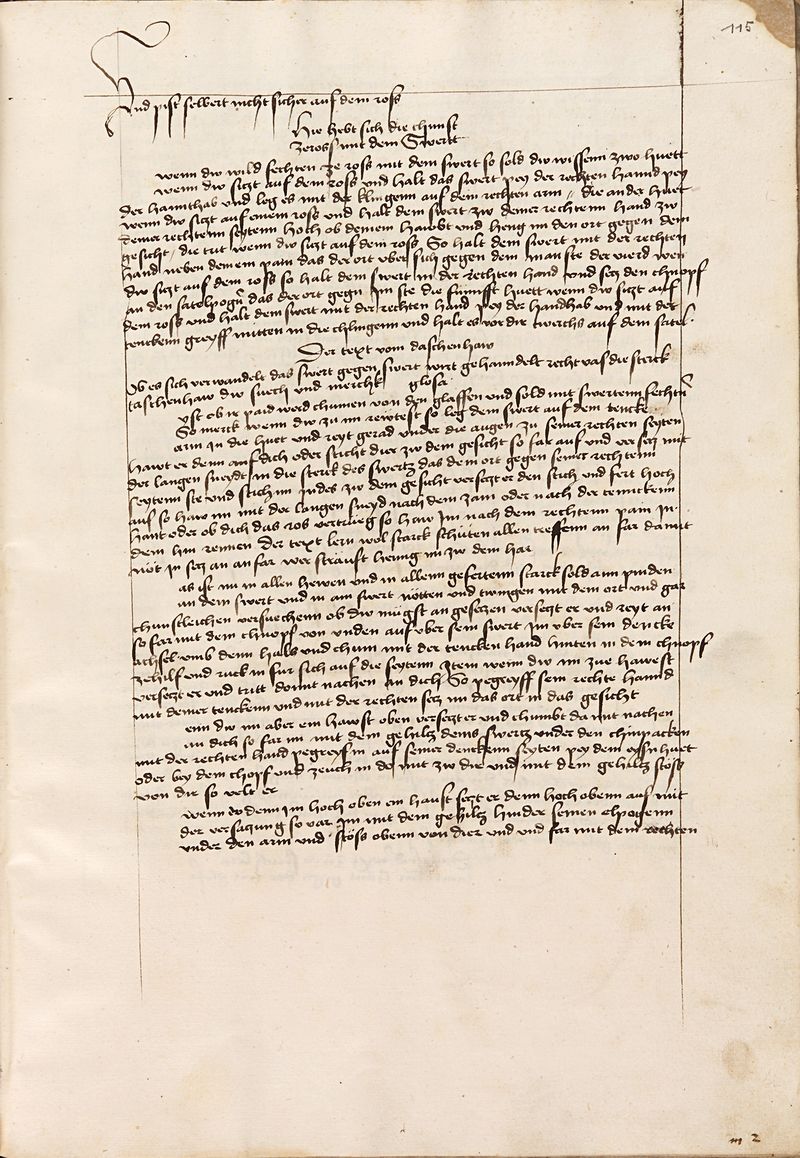 115
Und pist selbert nicht sicher auf dem ross
Hie hebt sich die chunst
ze ross mit dem Swertt
wenn dw wild fechten ze ross mit dem swert so sold dw wissenn zwo huett
wenn dw sizt auf dem ross und halt das swert pey der rechten hannd pey
der hannthab und leg es mit der klingenn auf dem rechten arm die ander huet
wenn dw sizt auf einem ross und halt dein swert zw deiner rechtenn hand zw
deiner rechtenn seytenn hoch ob deinem hawbt und heng im den ort gegen dem
gesicht die trit wenn dw sizt auf dem ross So halt dein swert mit der rechten
hand neben deinem pain das der ort vber sich gegen dem man ste der vierd wen
dw sizt auf dem ross so halt dein swert in der rechten hand und secz den chnopf
an den satelpogn das der ort gegn im ste die fünnfft huett wenn dw sizt auf
dem ross und halt dein swert mit der rechten hand pey der handhab und mit der
tenckenn greyff mitten in die chlingenn und halt es vor dir twerchs auf dem satel
Der text vom daschenhaw
Ob es sich verwandelt das swert gegen swert wirt gehanndelt recht vas die sterck
taschenhaw dw suech und merchk glosa
yst ob ir paid werd chumen von den glaffen und sold mit swertenn fechtn
So merck wenn dw zu im rewtest so leg dein swert auf dem tencke
arm in die huet und reyt gerad under die augen zu seiner rechten seyten
hawt er denn auf dich oder sticht dier zw dem gesicht so far auf und versecz mit
der langen sneydt in die sterck des swertz das dein ort gegen seiner rechtenn
seytenn ste und stich im Indes zw dem gesicht versetzt er den stich und fert hoch
auf so haw im mit der langen sneyd nach dem zam oder nach der tennckenn
hant oder ob dich das ros vertrueg so haw Im nach dem rechtenn pain in
dem hin rennen Der text lern wol starck schüten allen treffenn an far damit
nöt in secz an an far wer strauft henng im zw dem har
as ist im in allen hewen und in allenn gefertenn starck sold ann pinden
an dem swert und in am swert nötten und twingen mit dem ort und gar
chunstleichen versuechenn ob dw mügst an gesetzen versetzt er und reyt an
so far mit dem chnopf von unden auf vber sein swert im vber sein dencke
achsel umb denn hals und chum mit der tencken hand hinten in dem chnopf
ze hilf und ruck in fur sich auf die seytenn Item wenn dw im zue hawest
versetzt er und tritt domit nachen an dich So pegreyff sein rechte hannd
mit deiner tenckenn und mit der rechten secz im das ort in das gesicht
enn dw im aber ein hawst oben versetzt er und chumbt da mit nachen
an dich so far im mit dem gehiltz deins swertz under den chinpacken
mit der rechten hand pegreyf in auf seiner denckenn seyten pey dem eysnhuet
oder bey dem chopf und zeuch in do mit zw dir und mit dem gehultz stöss
von dir so velt er
wenn do denn im hoch oben ein haust secz er denn hoch obenn auf mit
der versaczung so var im mit dem gehiltz hinder seinen elpogenn
under den arm und stöss obenn von dier und und far mit dem rechten
m 2